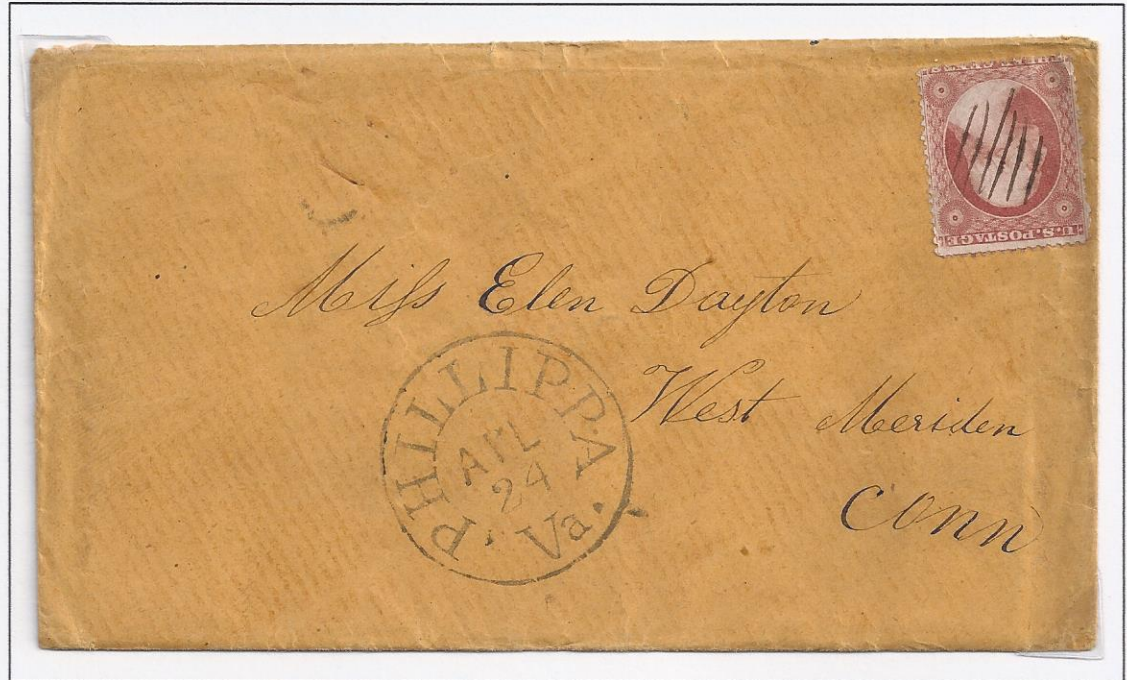 U.S. POSTAGE
Miſs Elen Dayton
West Meriden
Conn
PHILLIPPA
APL
24
Va.